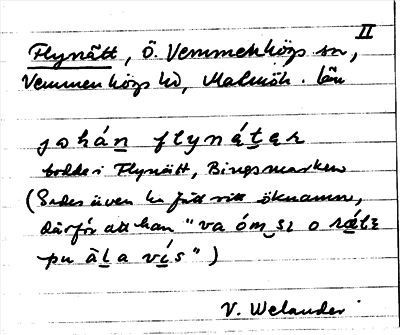 II
Flynätt, Ö. Vemmenhögs sn,
Vemmenhögs hd, Malmöh. län
johán flynę́tęr
bodde i Flynätt, Bingsmarken
(Sades även ha fått sitt öknamn,
därför att han "va óm_sı o rǽlę
pu ala vís")
V. Welander